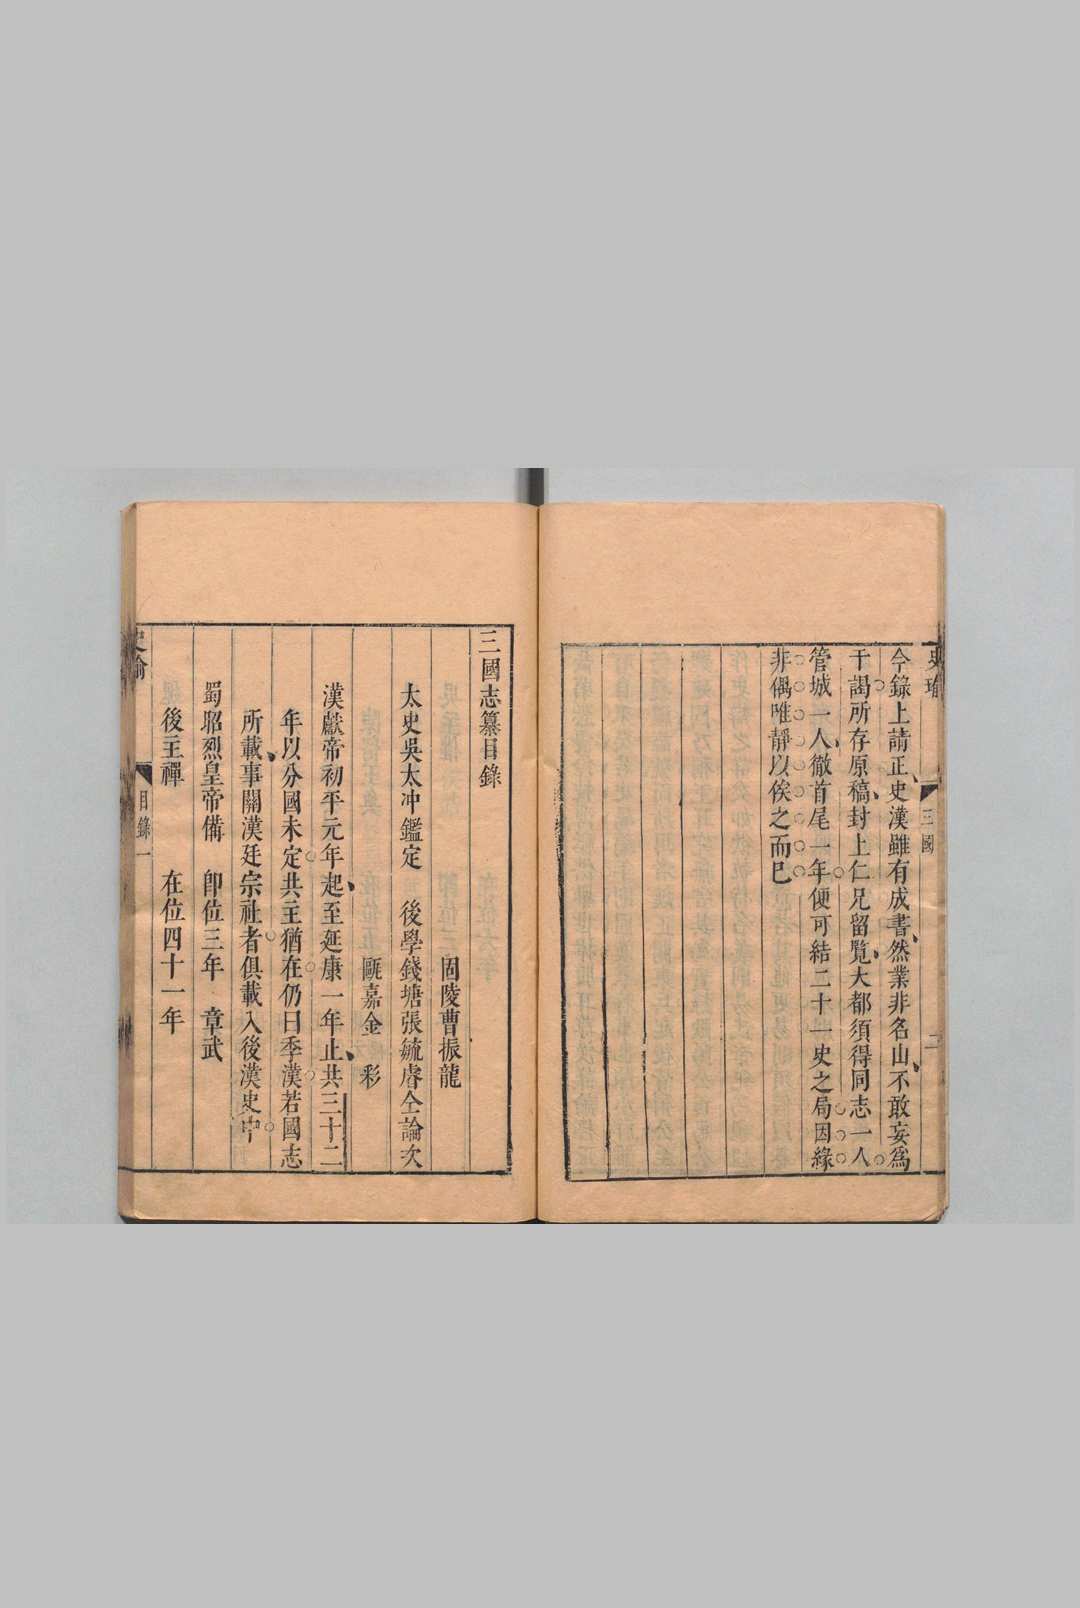 今錄上請正史漢雖有成書然業非名山不敢妄爲
干謁所存原稿封上仁兄留覽大都須得同志一人
管城一人徹首尾一年便可結二十一史之局因緣
非偶唯靜以俟之而巳
三國
二
三國志纂目錄
固陵曹振龍
太史吳太冲鑑定　後學錢塘張毓睿仝論次
甌嘉金　彩
漢獻帝初平元年起至延康一年止共三十二
年以分國未定共主猶在仍曰季漢若國志
所載事關漢廷宗社者俱載入後漢史中
蜀昭烈皇帝備　卽位三年　章武
後主禪　在位四十一年
目錄一